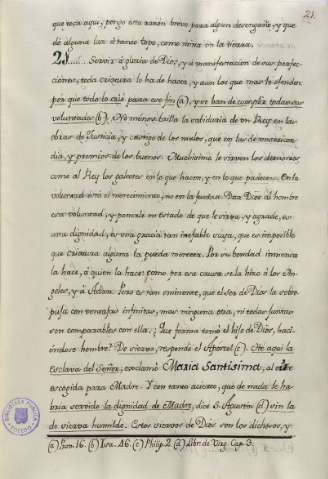 21.
que toca aquí, pongo esta razón breve para algun desengaño, y que
dé alguna luz à tanto topo, como mina en la tierra.
2)..... Servir à gloria de Dios, y à manifestacion de sus perfec-
ciones, toda criatura lo ha de hacer, y aun los que mas le ofenden
por que todo lo crió para eso fin (a), y se han de cumplir todas sus
voluntades (b). No menos brilla la sabiduria de un Rey en las
de Justicia, y castigo de los malos, que en las de misericor-
dia, y premios de los buenos. Muchisimo le sirven los demonios
como al Rey los galeotes en lo que hacen, y en lo que padecen. En la
voluntad está el merecimiento, no en la fuerza. Dar Dios al hombre
esta voluntad, y ponerle en estado de que le sirva, y agrade, es
una dignidad, es una gracia tan inefable suya, que es imposible
que criatura alguna la pueda merecer. Por su bondad inmensa
la hace, à quien la hace como por esa causa se la hizo à los An-
geles, y à Adam. Pero es tan eminente, que el ser de Dios la sobre
puja con ventajas infinitas, mas ninguna otra, ni todas juntas
son comparables con ella. Que forma tomó el hijo de Dios, haci-
endose hombre? De siervo, responde el Apostol (c). Hé aquí la
Esclava del Señor, exclamó Maria Santisima, al
escogida para Madre. Y con tanto acierto, que de nada le ha-
bria servido la dignidad de Madre, dice S. Agustin (d) sin la
de sierva humilde. Estos siervos de Dios son los dichosos, y
(a) Prov. 16. (b) Isa. 46. (c) Philip. 2. (d) Libr. de Virg. Cap. 3.
BIBLIOTECA PUBLICA
TOLEDO